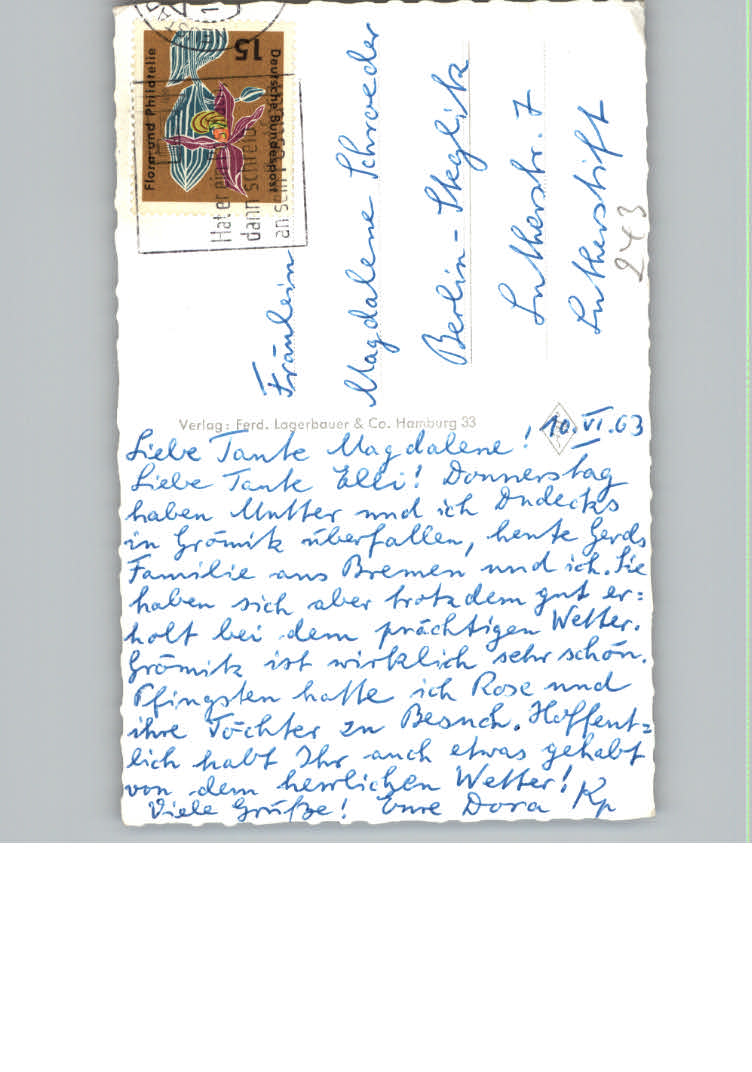 15
Deutsche Bundespost
Flora und Philatelie
Hat er ein
dann schreib
an
Fräulein
Magdalene Schroeder
Berlin-Steglitz
Lutherstr. 7
Lutherstift
243
Verlag: Ferd. Lagerbauer & Co. Hamburg 33
10.VI.63
Liebe Tante Magdalene!
Liebe Tante Elli! Donnerstag
haben Mutter und ich Dudecks
in Grömitz überfallen, heute Gerds
Familie aus Bremen und ich. Sie
haben sich aber trotzdem gut er=
holt bei dem prächtigen Wetter.
Grömitz ist wirklich sehr schön.
Pfingsten hatte ich Rose und
ihre Töchter zu Besuch. Hoffent=
lich habt Ihr auch etwas gehabt
von dem herrlichen Wetter!
Viele Grüße! Eure Dora Kp